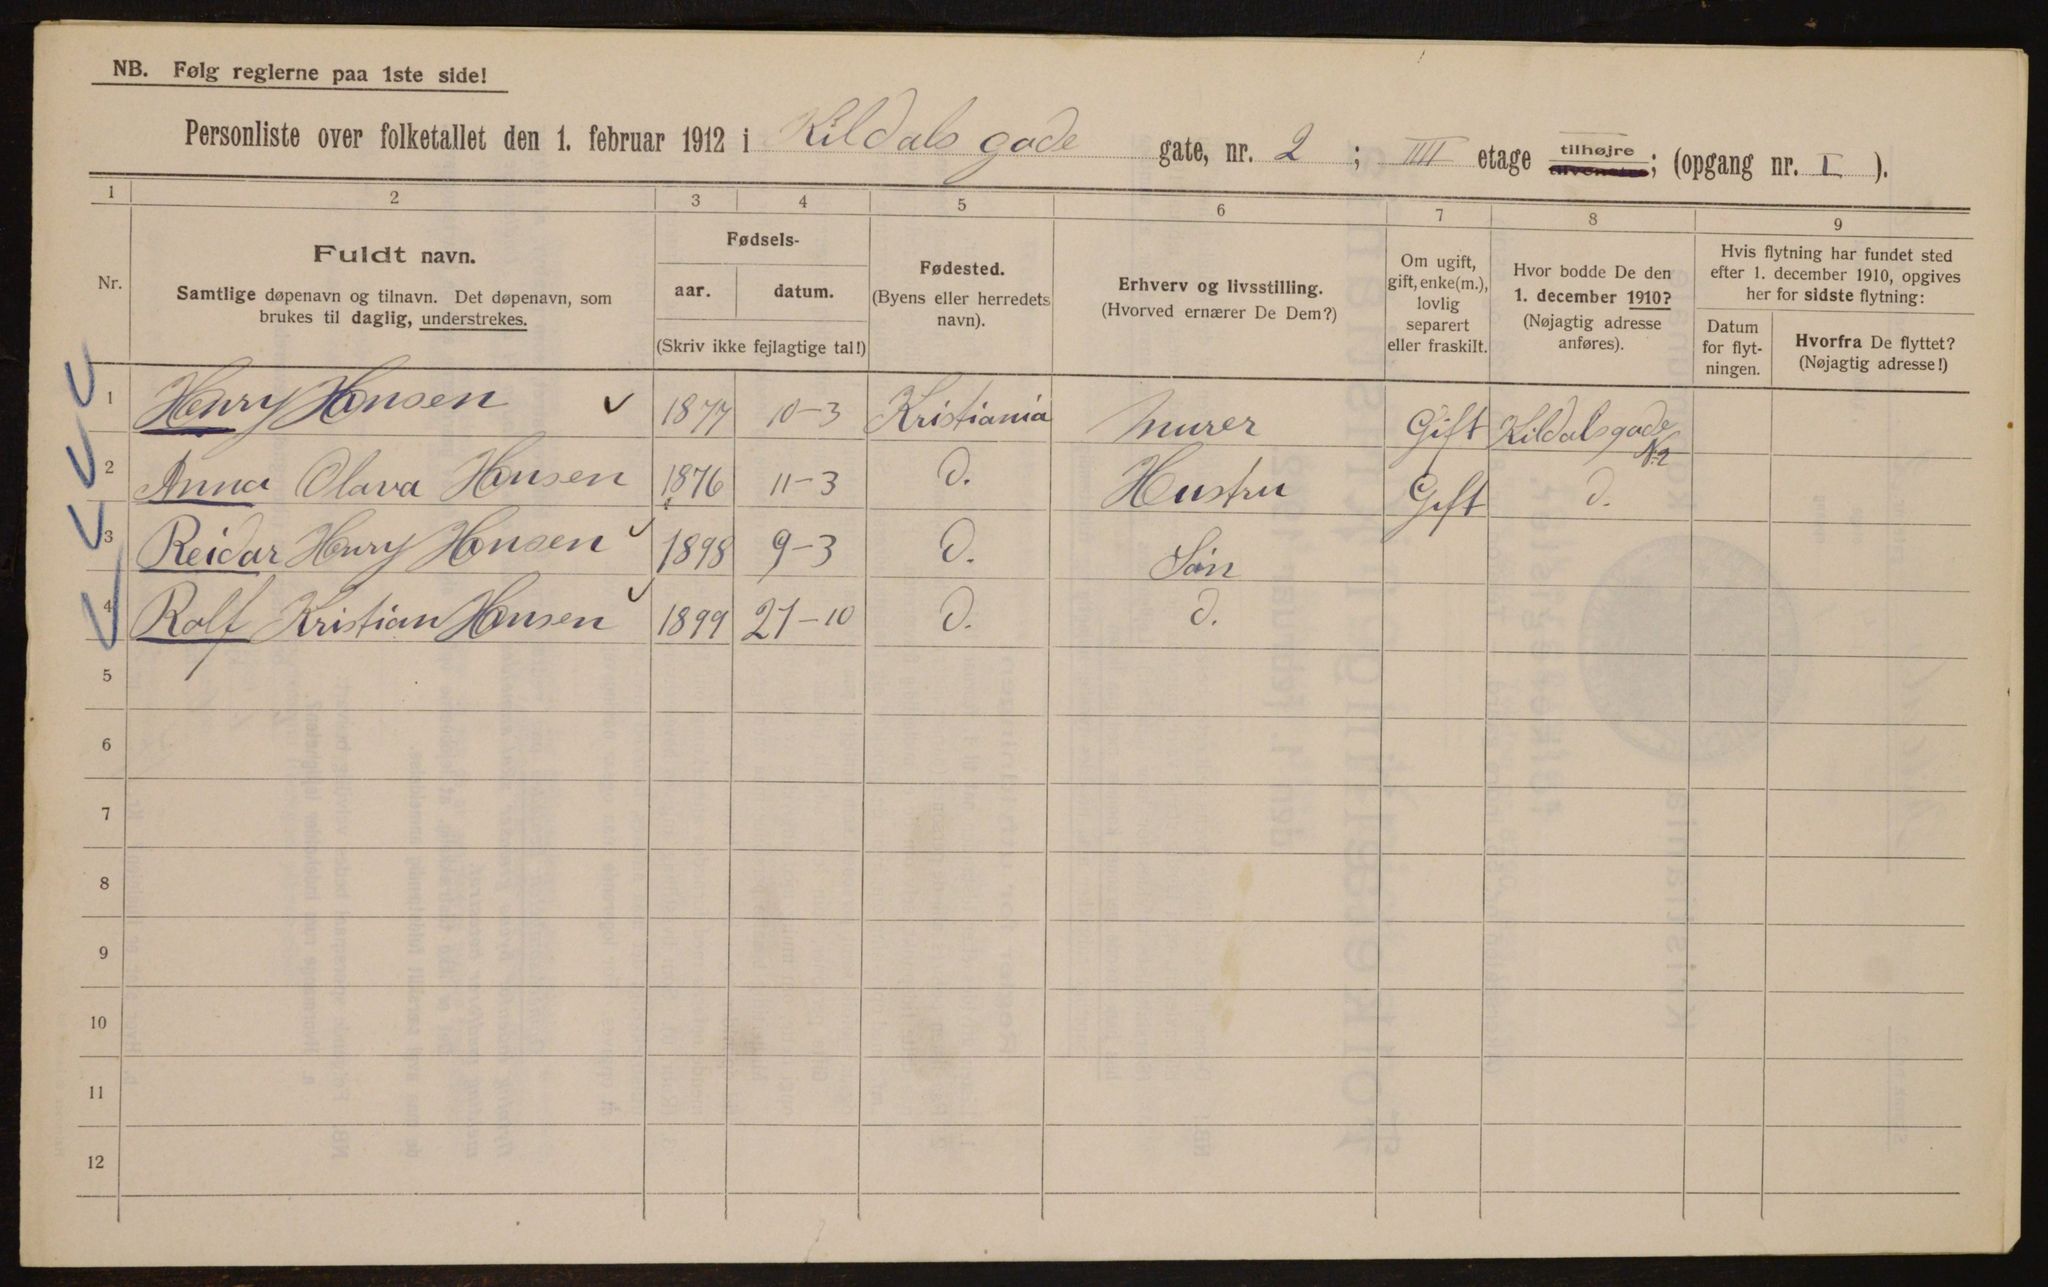 NB. Følg reglerne paa 1ste side!
Personliste over folketallet den 1. februar 1912 i Kildals gade gate, nr. 2 ; IIII etage tilhøjre ; (opgang nr. I ).
tilvenstre
1 2 3 4 5 6 7 8 9
Nr.
Fuldt navn.
Samtlige døpenavn og tilnavn. Det døpenavn, som
brukes til daglig, understrekes.
Fødsels-
aar. datum.
(Skriv ikke fejlagtige tal!)
Fødested.
(Byens eller herredets
navn).
Erhverv og livsstilling.
(Hvorved ernærer De Dem?)
Om ugift,
gift, enke(m.),
lovlig
separert
eller fraskilt.
Hvor bodde De den
1. december 1910?
(Nøjagtig adresse
anføres).
Hvis flytning har fundet sted
efter 1. december 1910, opgives
her for sidste flytning:
Datum
for flyt-
ningen.
Hvorfra De flyttet?
(Nøjagtig adresse!)
1 Henry Hansen 1877 10-3 Kristiania Murer Gift Kildalsgade
No 2
2 Anna Olava Hansen 1876 11-3 d. Hustru Gift d.
3 Reidar Henry Hansen 1898 9-3 d. Søn
4 Rolf Kristian Hansen 1899 21-10 d. d.
5
6
7
8
9
10
11
12